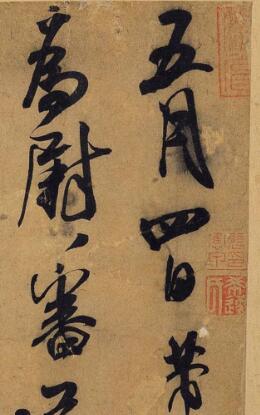 五月四日芾
為尉、審